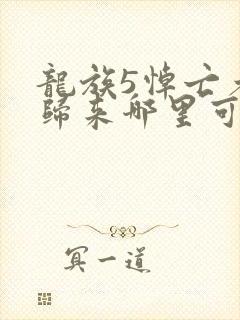 龍族5悼亡者
歸來哪里可
冥一道